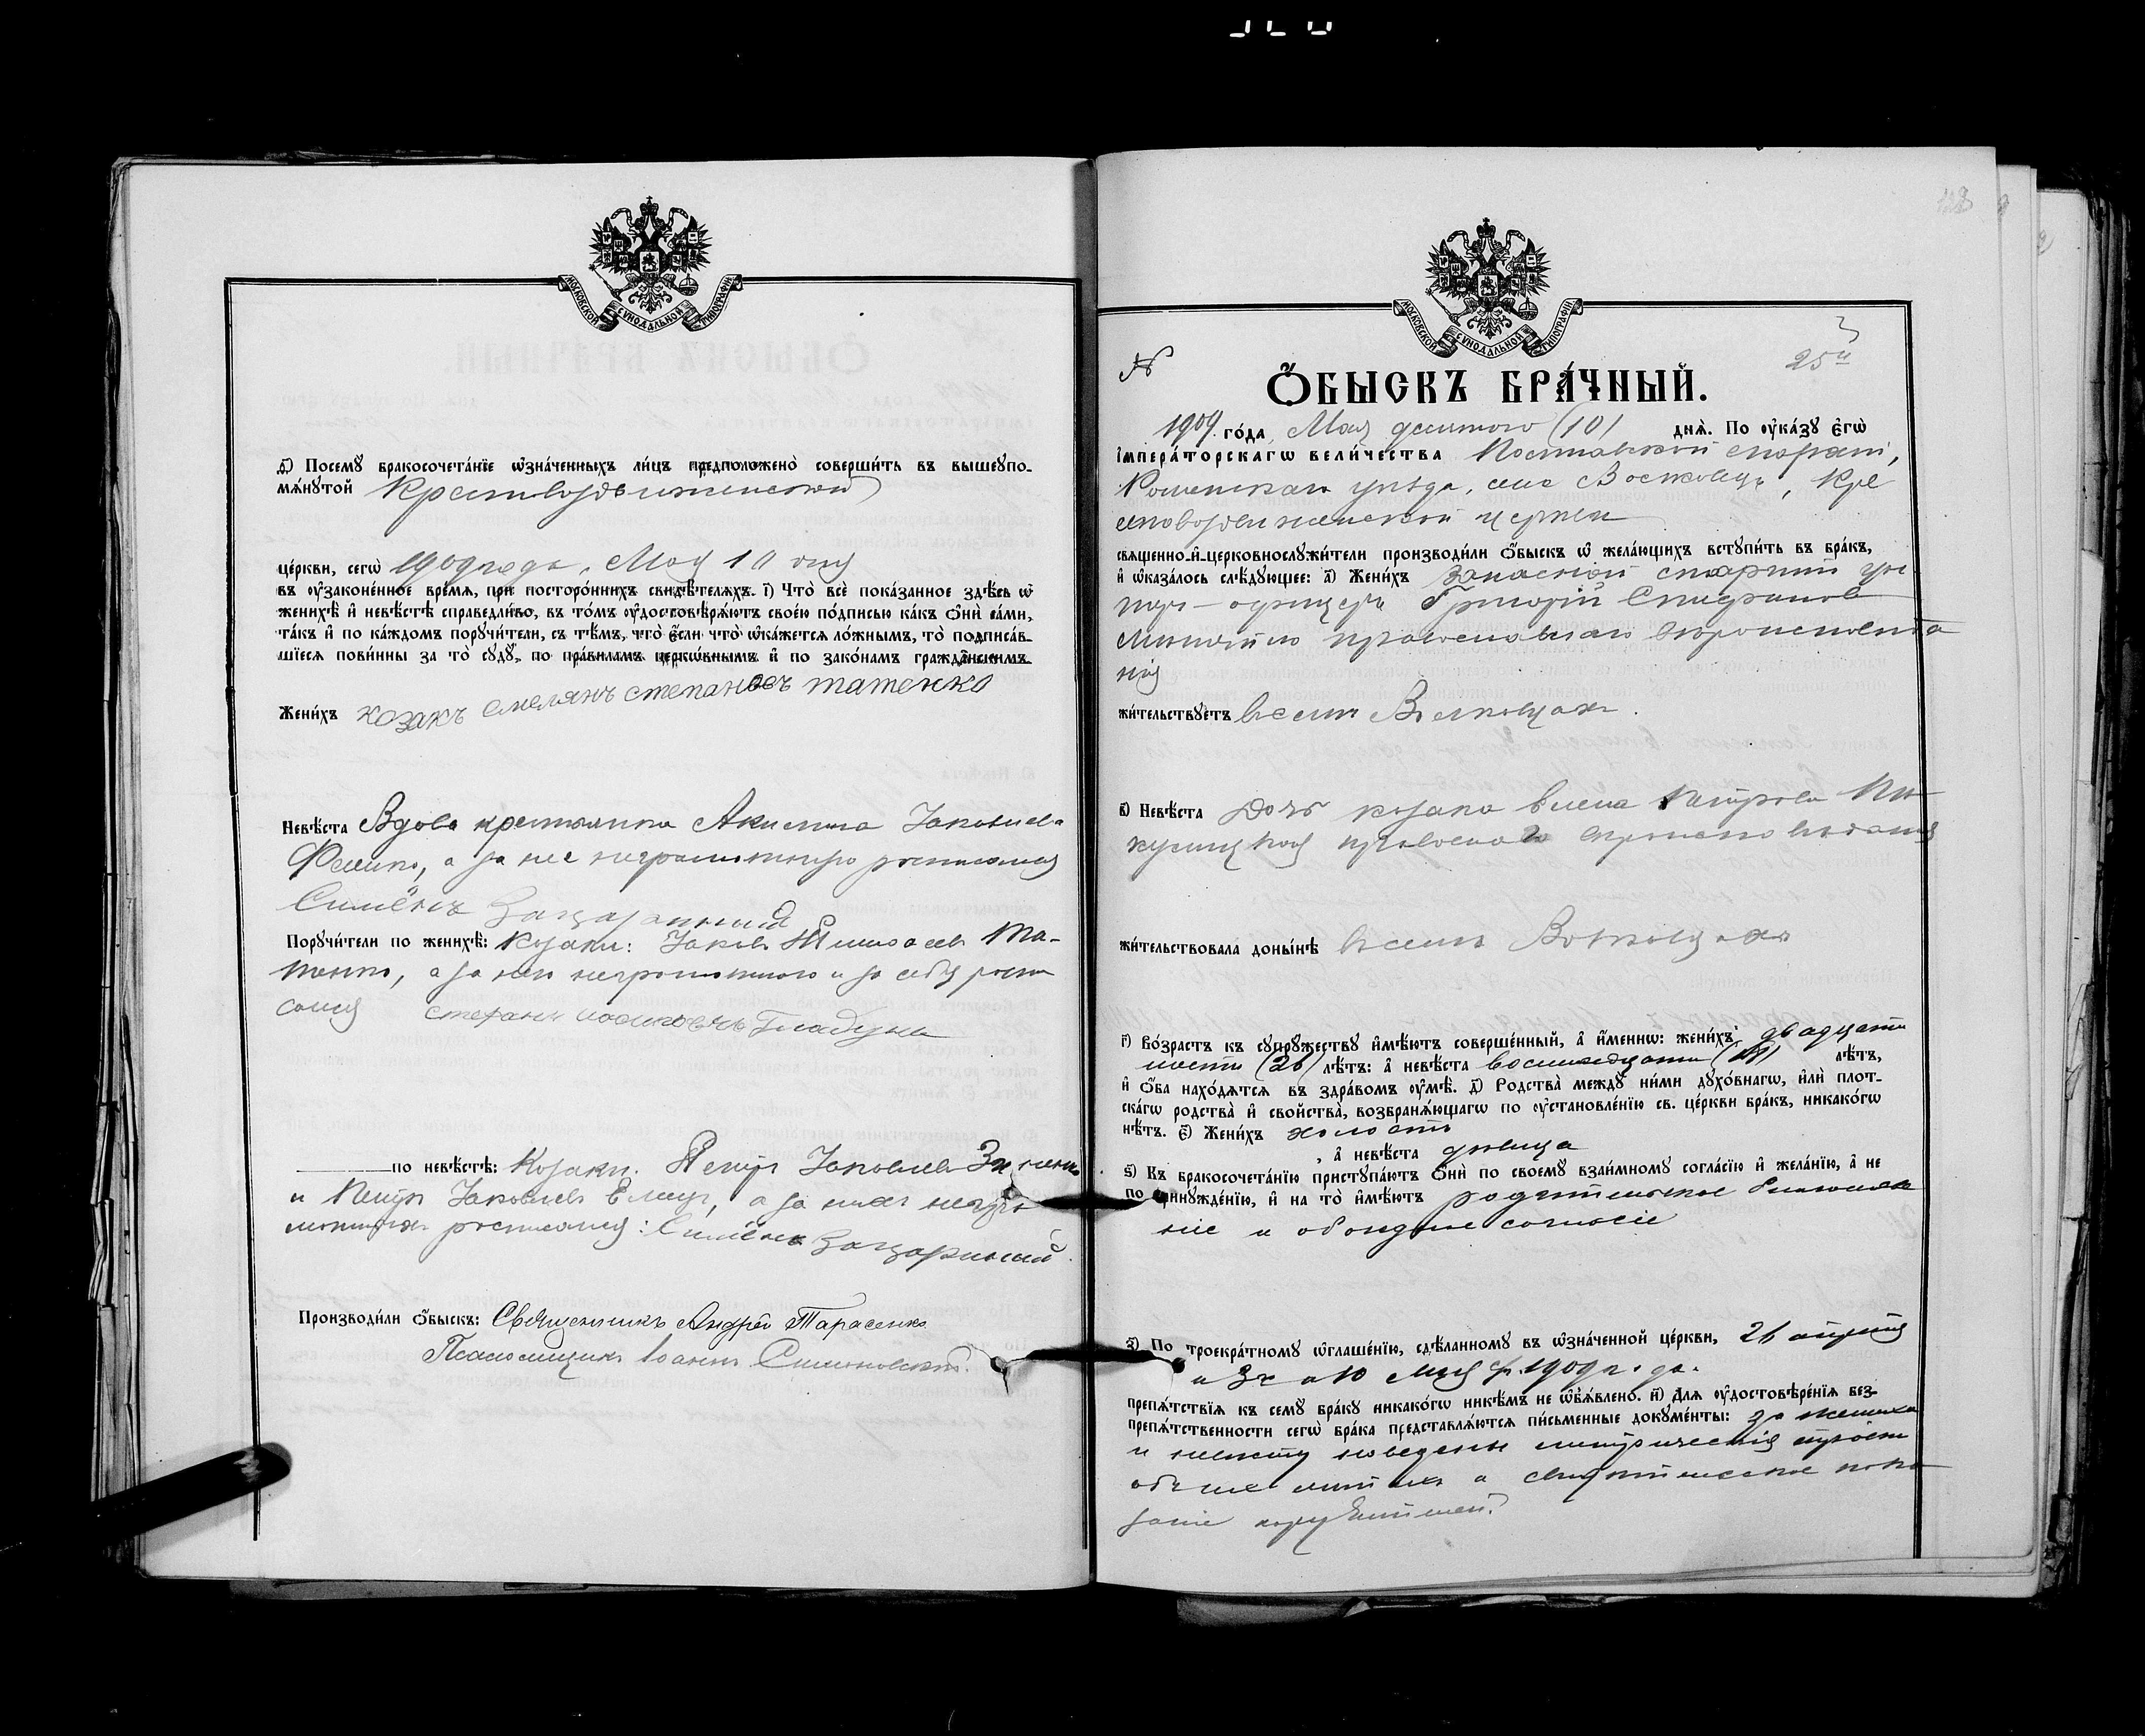 МОСКОВСКОЙ СУНОДАЛЬНОЙ ТИПОГРАФІИ
Посемꙋ бракосочета́нїе ѡ҆зна́ченныхъ ли́цъ предположено̀ соверши́ть въ вышеꙋпо-
мѧ́нꙋтой Крестовоздвиженской
це́ркви, сегѡ̀ 1909 года, Мая 10 дня
въ ᲂу҆зако́ненное вре́мѧ, при посторо́ннихъ свидѣ́телѧхъ. і҃) Что̀ всѐ пока́занное здѣ́сь ѡ҆
женихѣ̀ и҆ невѣ́стѣ справедли́во, въ то́мъ ᲂу҆достовѣрѧ́ютъ свое́ю по́дписью ка́къ ѻ҆нѝ са́ми,
та́къ и҆ по ка́ждомъ порꙋчи́тели, съ тѣ́мъ, что̀ є҆́сли что̀ ѡ҆ка́жетсѧ ло́жнымъ, то̀ подписа́в-
шїесѧ пови́нны за то̀ сꙋдꙋ̀, по пра́виламъ церкѡ́внымъ и҆ по зако́намъ гражда̑нскимъ.
Жени́хъ козакъ емелянъ степановъ татенко
Невѣ́ста Вдова крестьянка Акилина Іаковлева
а за нее неграмотную росписался
Симеонъ
Порꙋчи́тели по женихѣ̀: Козаки: Іаковъ Та-
тенко, а за него неграмотного и за себя роспи
сался стефанъ иосиповъ Гладунъ
по невѣ́стѣ: Козаки: Петръ Іаковлевъ
и Петръ Іаковлевъ а за нихъ негра
мотныхъ росписался: Симеонъ
Производи́ли ѻ҆́быскъ: Священникъ Андрей Тарасенко
Псаломщикъ Іоаннъ Симоновскій.
МОСКОВСКОЙ СУНОДАЛЬНОЙ ТИПОГРАФІИ
№
25й
Ѻ҆́БЫСКЪ БРА́ЧНЫЙ.
1909 го́да, Мая десятого (10) днѧ̀. По ᲂу҆ка́зꙋ є҆гѡ̀
і҆мпера́торскагѡ вели́чества Полтавской епархіи,
Роменскаго уѣзда, села Волковцъ, Кре
стовоздвиженской церкви
свѧще́нно-и҆-церковнослꙋжи́тели производи́ли ѻ҆́быскъ ѡ҆ жела́ющихъ встꙋпи́ть въ бра́къ,
и҆ ѡ҆каза́лось слѣ́дꙋющее: а҃) Жени́хъ Запасной старшій ун
теръ-офицеръ Григорій Спиридоновъ
православнаго вѣроисповѣда
нія
жи́тельствꙋетъ въ селѣ Волковцахъ.
в҃) Невѣ́ста Дочь козака Елена Петрова
православнаго вѣроисповѣданія
жи́тельствовала доны́нѣ въ селѣ Волковцахъ
г҃) Во́зрастъ къ сꙋпрꙋ́жествꙋ и҆мѣ́ютъ соверше́нный, а҆ и҆́меннѡ: жени́хъ двадцати
шести (26) лѣ́тъ: а҆ невѣ́ста восемнадцати (18) лѣ́тъ,
и҆ ѻ҆́ба нахо́дѧтсѧ въ здра́вомъ ᲂу҆мѣ̀. д҃) Родства̀ междꙋ̀ ни́ми дꙋхо́внагѡ, и҆лѝ плот-
ска́гѡ родства̀ и҆ сво́йства̀, возбранѧ́ющагѡ по ᲂу҆становле́нїю св. це́ркви бра́къ, никако́гѡ
нѣ́тъ. є҃) Жени́хъ холостъ
, а҆ невѣ́ста дѣвица
ѕ҃) Къ бракосочета́нїю пристꙋпа́ютъ ѻ҆нѝ по своемꙋ̀ взаи́мномꙋ согла́сїю и҆ жела́нїю, а҆ не
по принꙋжде́нїю, и҆ на то̀ и҆мѣ́ютъ родительское благослове
ніе и обоюдное согласіе
з҃) По троекра́тномꙋ ѡ҆глаше́нїю, сдѣ́ланномꙋ въ ѡ҆зна́ченной це́ркви, 26 апрѣля
и 3го и 10 мая 1909 года.
препѧ́тствїѧ къ семꙋ̀ бра́кꙋ никако́гѡ никѣ́мъ не ѡ҆б̾ѧ́влено. и҃) Длѧ ᲂу҆достовѣре́нїѧ без-
препѧ́тственности сегѡ̀ бра́ка представлѧ́ютсѧ пи́сьменные докꙋме́нты: За жениха
и невѣсту наведены метрическія справки
объ ихъ лѣтахъ и свидѣтельское пока
заніе поручителей.